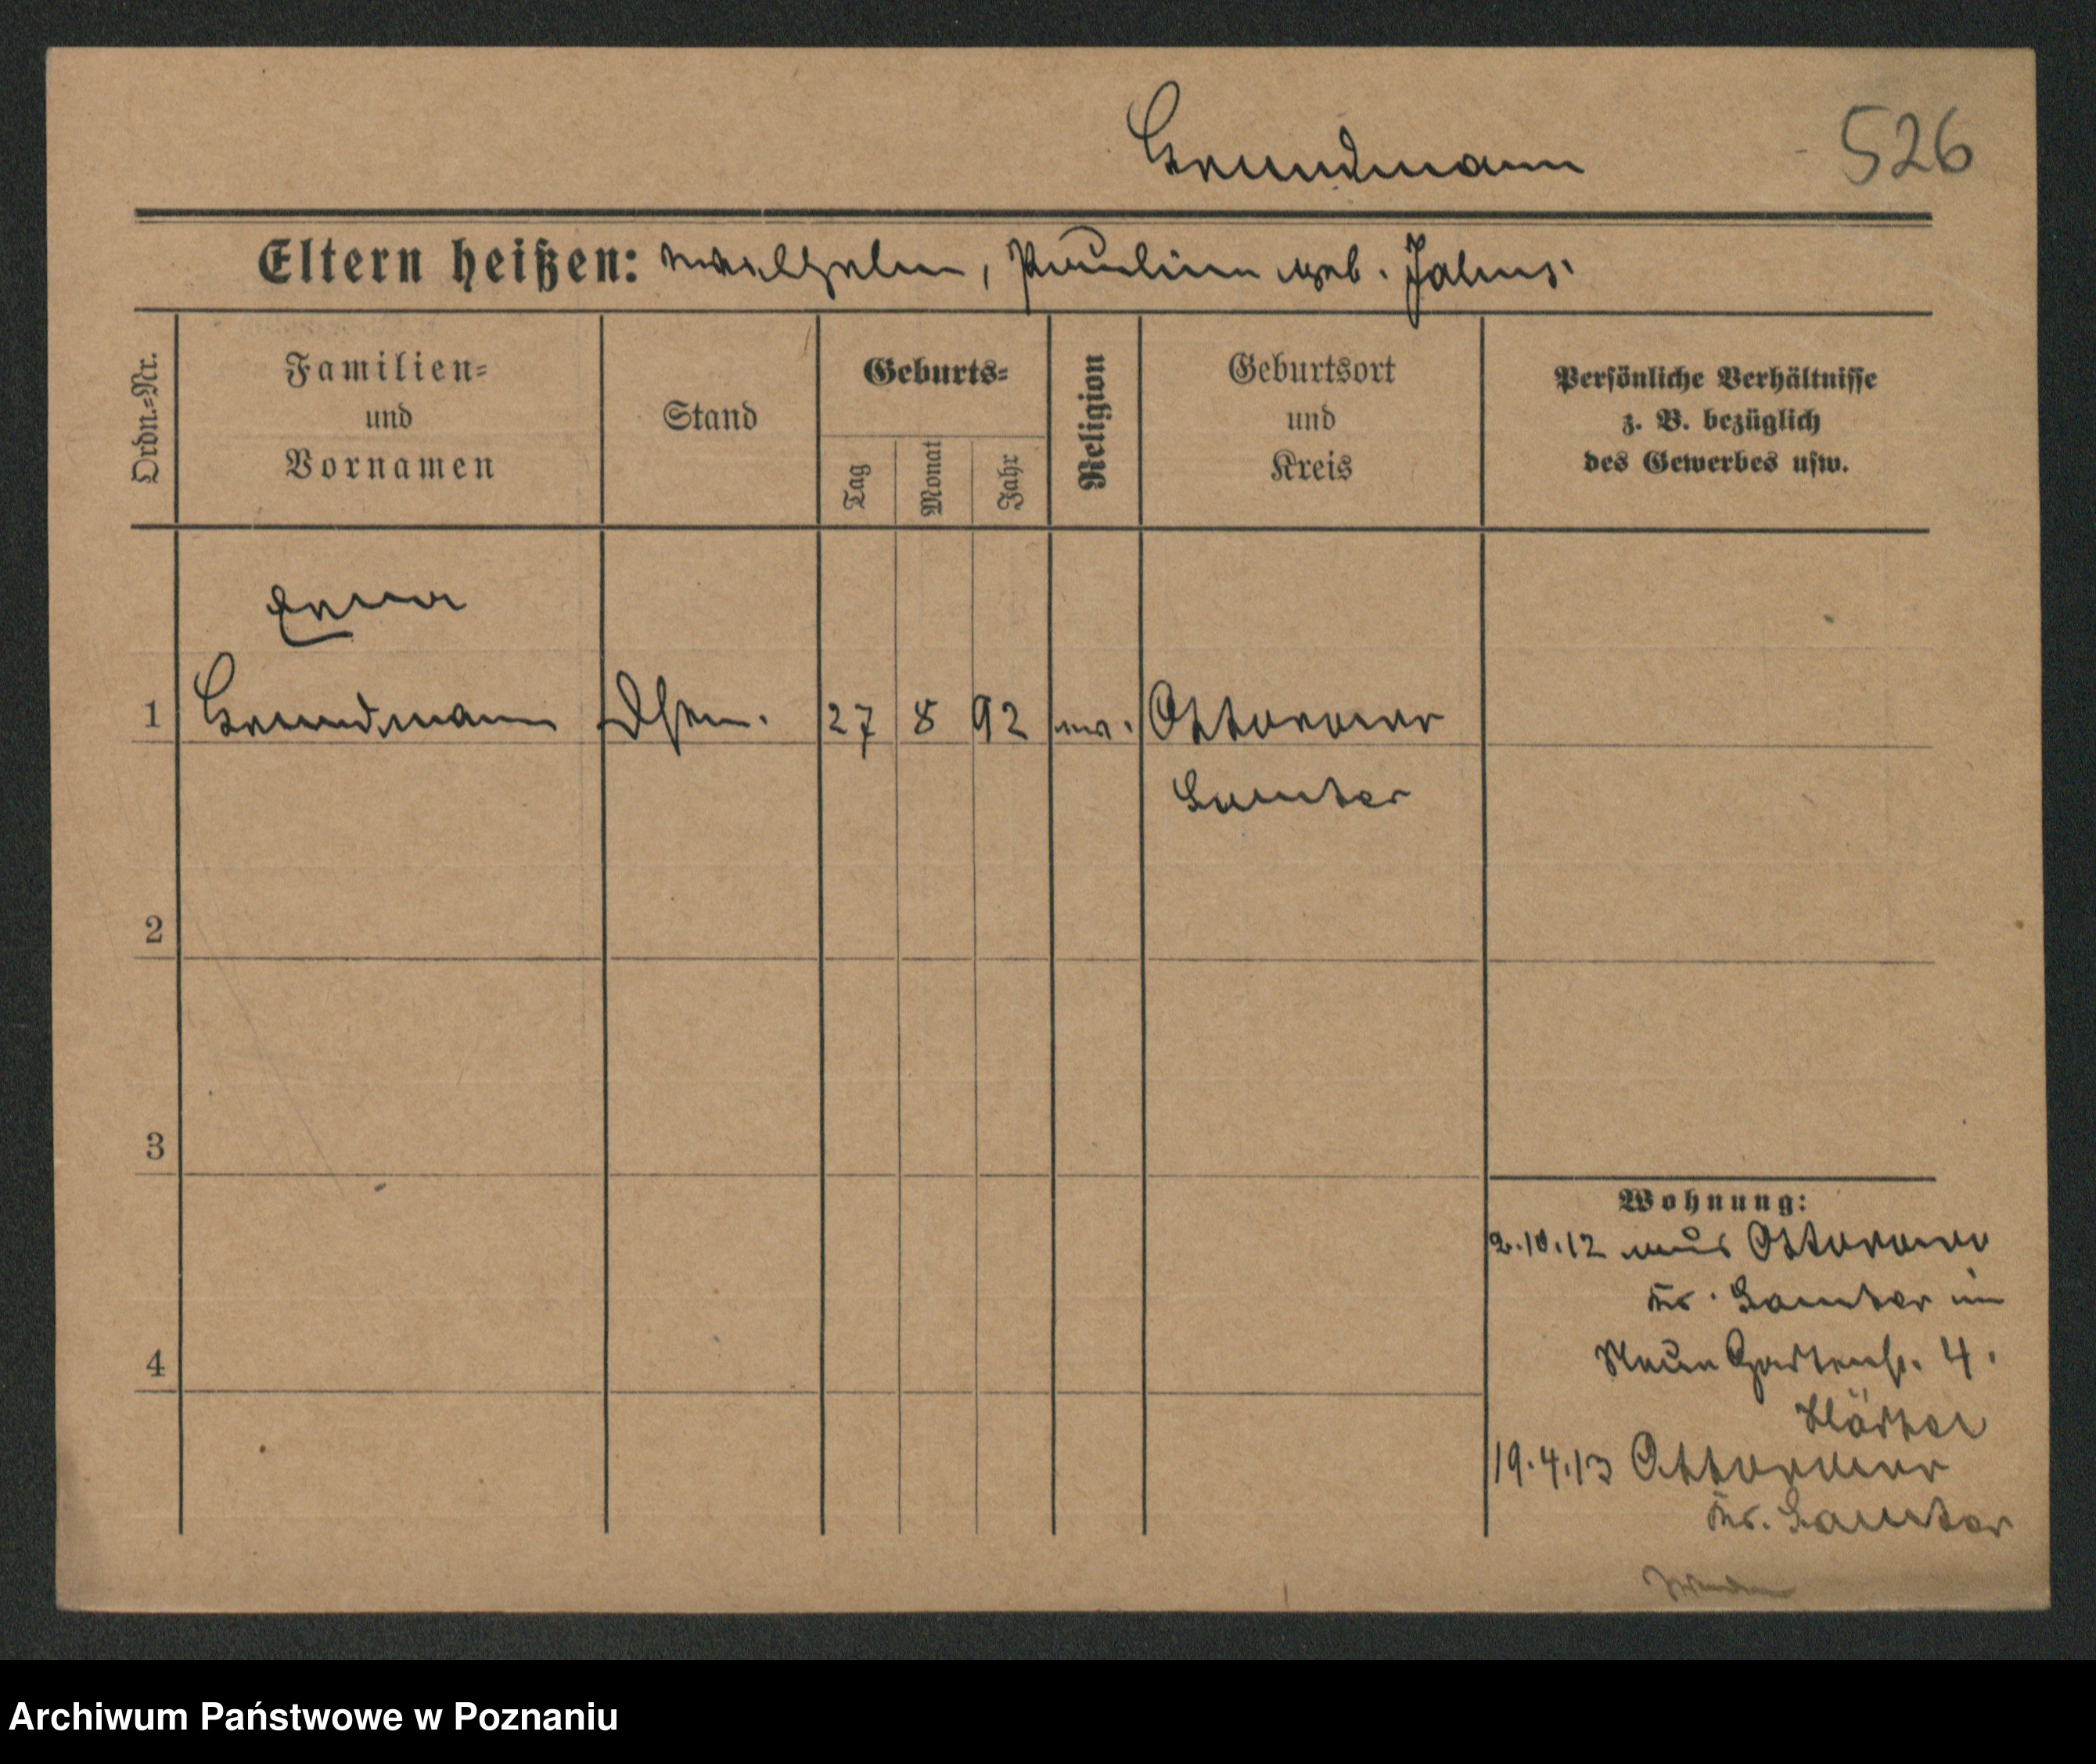 Grundmann
526
Eltern heißen: Wilhelm, Pauline geb. Jahns.
Ordn.=Nr.
Familien=
und
Vornamen
Stand
Geburts=
Tag
Monat
Jahr
Religion
Geburtsort
und
Kreis
Persönliche Verhältnisse
z. B. bezüglich
des Gewerbes usw.
Erna
1 Grundmann 27 8 92 Ottorowo
Samter
2
3
4
Wohnung:
2.10.12 aus Ottorowo
Kr. Samter in
Neue Gartenstr. 4.
19.4.13 Ottorowo
Kr. Samter
Archiwum Państwowe w Poznaniu